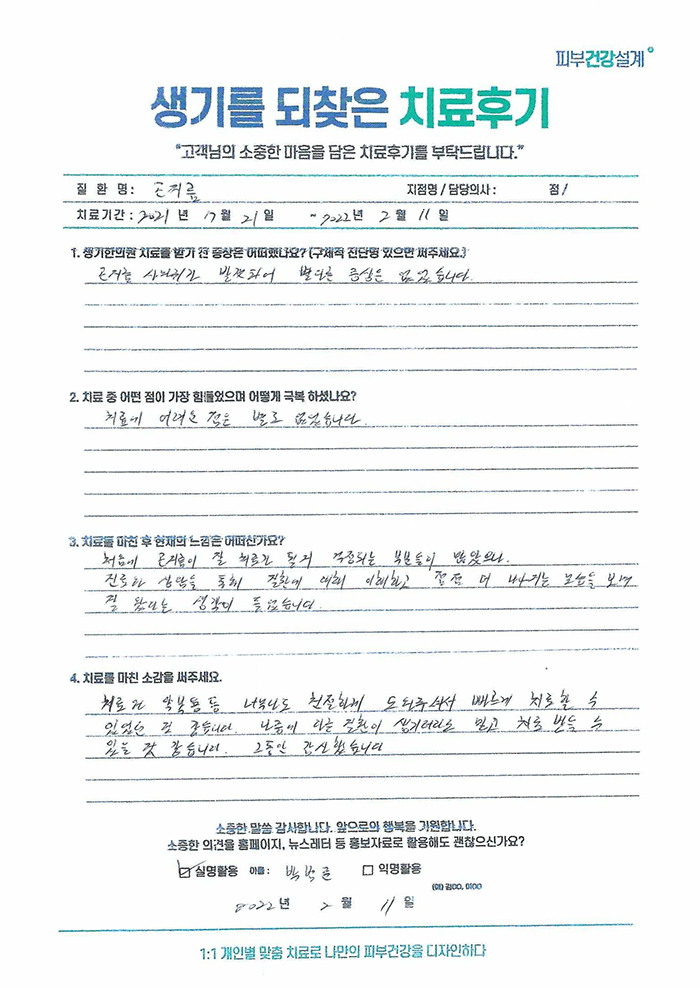 피부건강설계
생기를 되찾은 치료후기
"고객님의 소중한 마음을 담은 치료후기를 부탁드립니다."
질 환 명 : 곤지름 지점명 / 담당의사 : 점 /
치료기간 : 2021 년 월 21 일 ~ 2022 년 2 월 11 일
1. 생기한의원 치료를 받기 전 증상은 어떠했나요? (구체적 진단명 있으면 써주세요.)
곤지름 사마귀가 발견되어 별다른 증상은 없었습니다.
2. 치료 중 어떤 점이 가장 힘들었으며 어떻게 극복 하셨나요?
치료에 어려운 점은 별로 없었습니다.
3. 치료를 마친 후 현재의 느낌은 어떠신가요?
처음에 곤지름이 잘 치료가 될지 걱정되는 부분들이 많았으나.
진료와 상담을 통해 질환에 대해 이해하고 점점 더 나아지는 모습을 보며
잘 왔다는 생각이 들었습니다.
4. 치료를 마친 소감을 써주세요.
치료와 약복용 등 너무나도 친절하게 도와주셔서 빠르게 치료할 수
있었던 것 같습니다. 나중에 다른 질환이 생기더라도 믿고 치료 받을 수
있을 것 같습니다. 그동안 감사했습니다
소중한 말씀 감사합니다. 앞으로의 행복을 기원합니다.
소중한 의견을 홈페이지, 뉴스레터 등 홍보자료로 활용해도 괜찮으신가요?
실명활용 이름 : 익명활용
(예) 김OO, 이OO
2022 년 2 월 11 일
1:1 개인별 맞춤 치료로 나만의 피부건강을 디자인하다